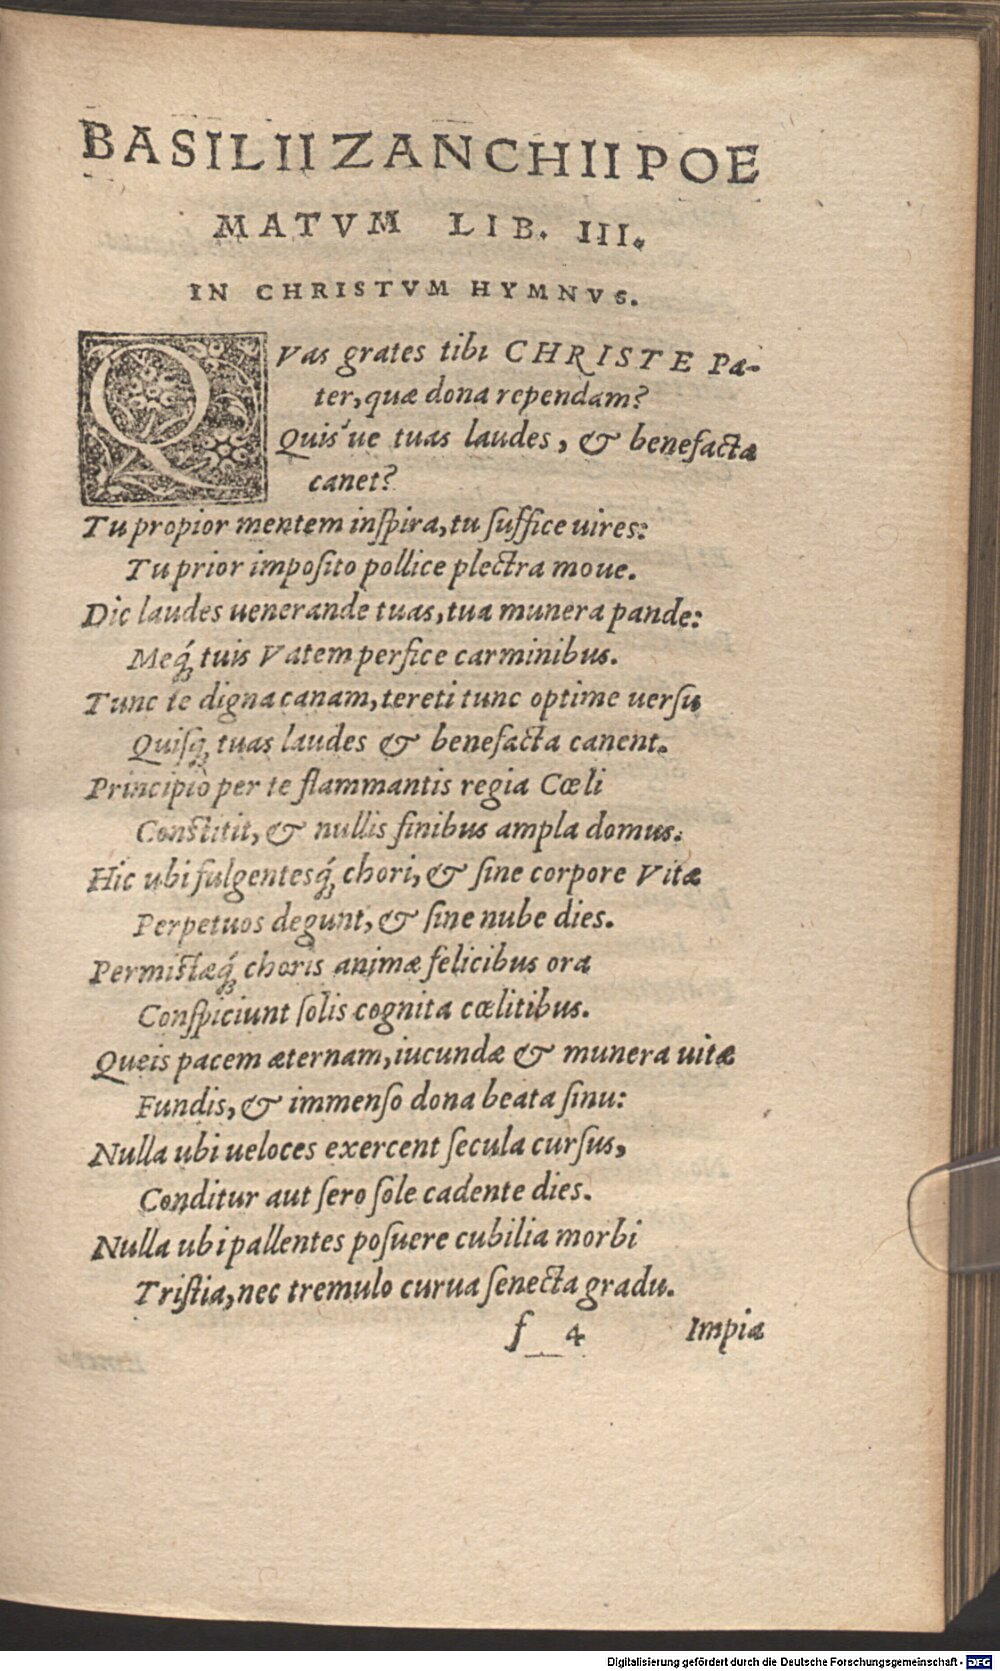 BASILII ZANCHII POE
MATVM LIB. III.
IN CHRISTVM HYMNVS.
QVas grates tibi CHRISTE Pa-
ter, quæ dona rependam?
Quis've tuas laudes, & benefacta
canet?
Tu propior mentem inſpira, tu ſuffice uires:
Tu prior impoſito pollice plectra moue.
Dic laudes uenerande tuas, tua munera pande:
Meq́; tuis Vatem perfice carminibus.
Tunc te digna canam, tereti tunc optime uerſu
Quiſq; tuas laudes & benefacta canent.
Principiò per te flammantis regia Cœli
Conſtitit, & nullis finibus ampla domus.
Hic ubi fulgentesq́; chori, & ſine corpore Vitæ
Perpetuos degunt, & ſine nube dies.
Permiſtæq́; choris animæ felicibus ora
Conſpiciunt ſolis cognita cœlitibus.
Queis pacem æternam, iucundæ & munera uitæ
Fundis, & immenſo dona beata ſinu:
Nulla ubi ueloces exercent ſecula curſus,
Conditur aut ſero ſole cadente dies.
Nulla ubi pallentes poſuere cubilia morbi
Triſtia, nec tremulo curua ſenecta gradu.
f 4 Impiæ
Digitalisierung gefördert durch die Deutsche Forschungsgemeinschaft - DFG